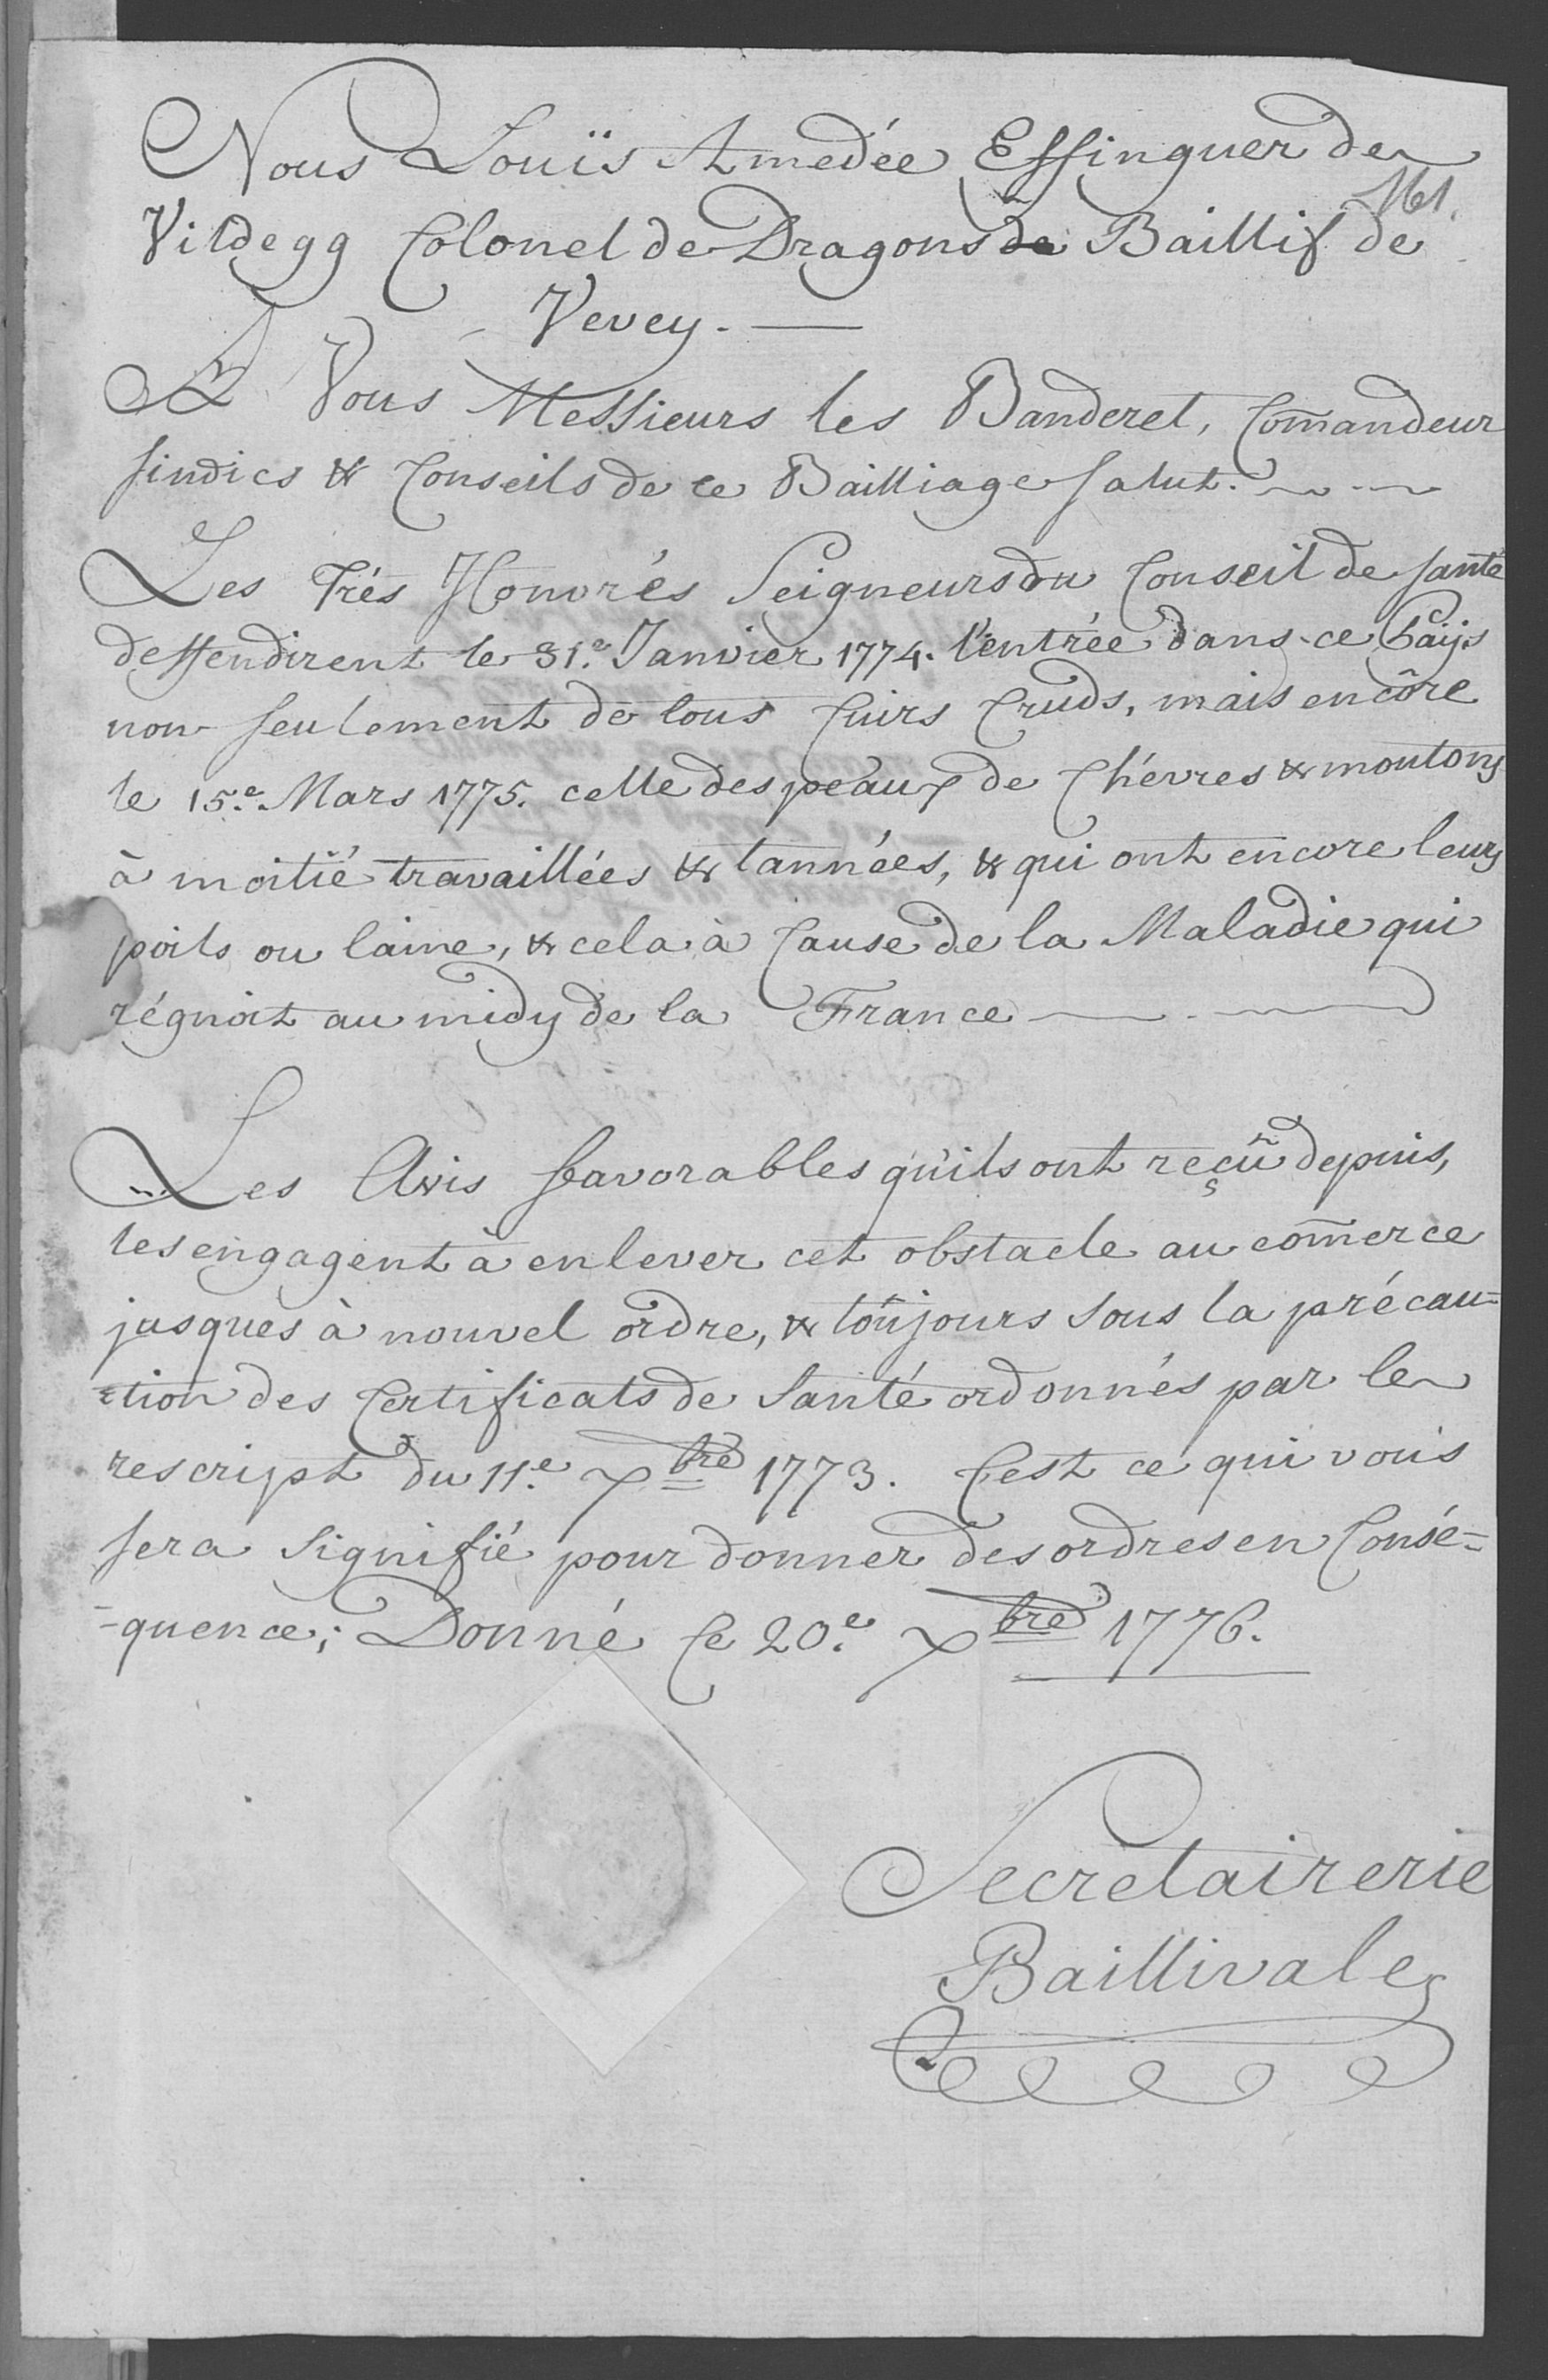 Nous Louïs Amedée Effinguer de
161.
Vildegg Colonel de Dragons de Baillif de
Vevey.
A Vous Messieurs les Banderet, Com̄andeur
sindics & Conseils de ce Bailliage salut.
Les Trés Honorés Seigneurs du Conseil de santé
deffendirent le 31.e Janvier 1774. l'entrée dans ce Païs
non seulement de tous Cuirs Cruds, mais encôre
le 15.e Mars 1775. celle des peaux de Chévres & moutons
à moitié travaillées & tannées, & qui ont encore leurs
poils ou laine, & cela à Cause de la Maladie qui
régnoit au midy de la France
Les Avis favorables qu'ils ont reçû depuis,
les engagent à enlever cet obstacle au com̄erce
jusques à nouvel ordre, & toûjours sous la précau=
=tion des Certificats de Santé ordonnés par le
rescript du 11.e Xbre 1773. C'est ce qui vous
sera signifié pour donner des ordres en Consé=
=quence; Donné Ce 20.e Xbre 1776.
Secretairerie
Baillivale